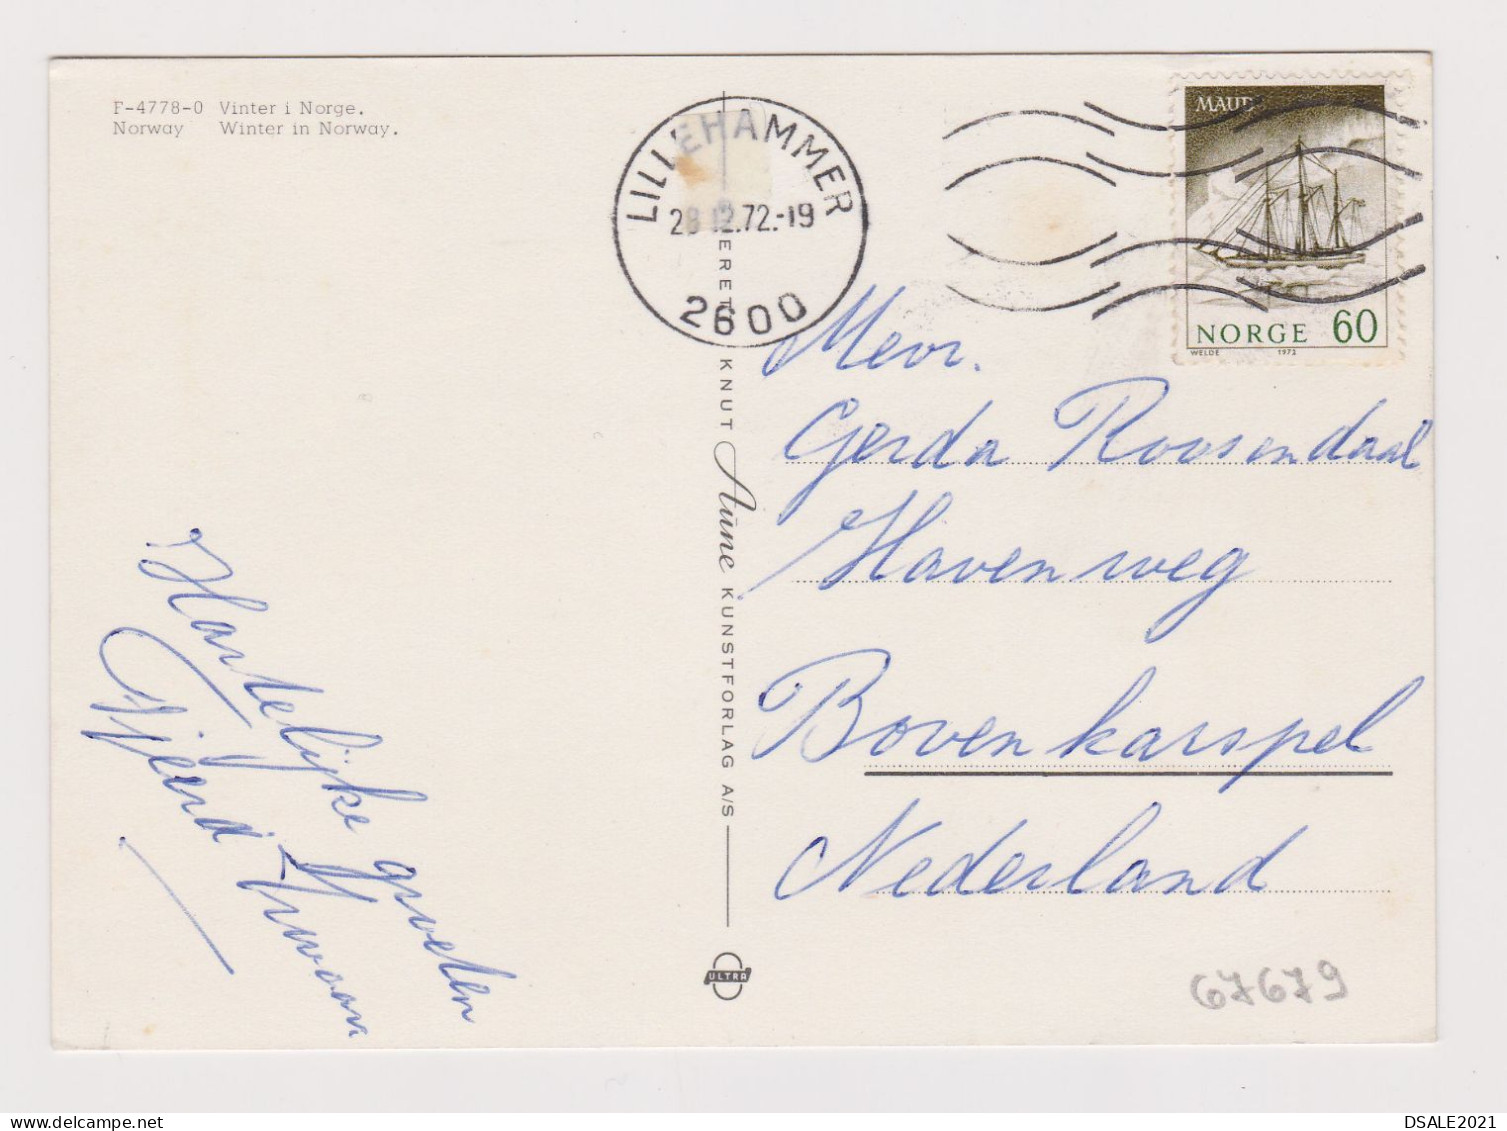 F-4778-0 Vinter i Norge.
Norway Winter in Norway.
LILLEHAMMER
28.12.72.-19
2600
MAUD
NORGE 60
WELDE 1972
ENERET
KNUT Aune KUNSTFORLAG A/S
ULTRA
Mevr.
Gerda Roosendaal
Havenweg
Bovenkarspel
Nederland
Hartelijke groeten
Tjeerd
67679
DSALE2021